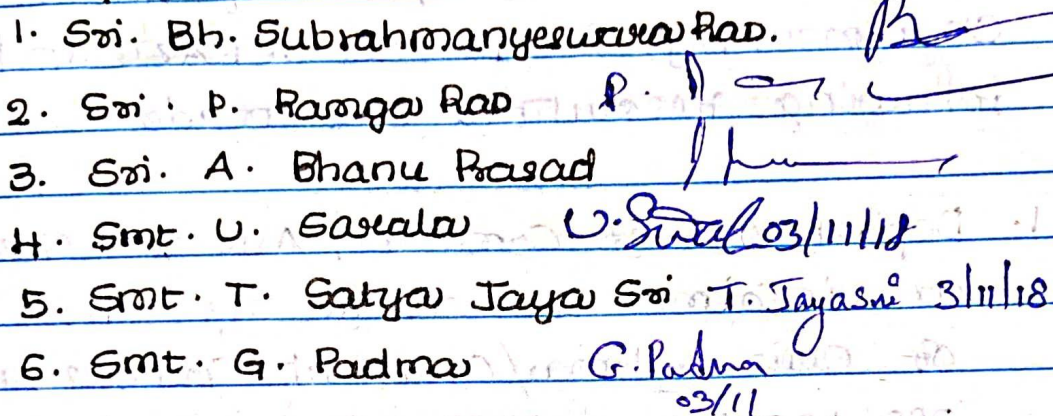 1. Sri. Bh. Subrahmanyeswara Rao.
2. Sri. P. Ranga Rao P.
3. Sri. A. Bhanu Prasad
4. Smt. U. Sarala U. 03/11/18
5. Smt. T. Satya Jaya Sri T. Jayasri 3/11/18
6. Smt. G. Padma G. Padma
03/11